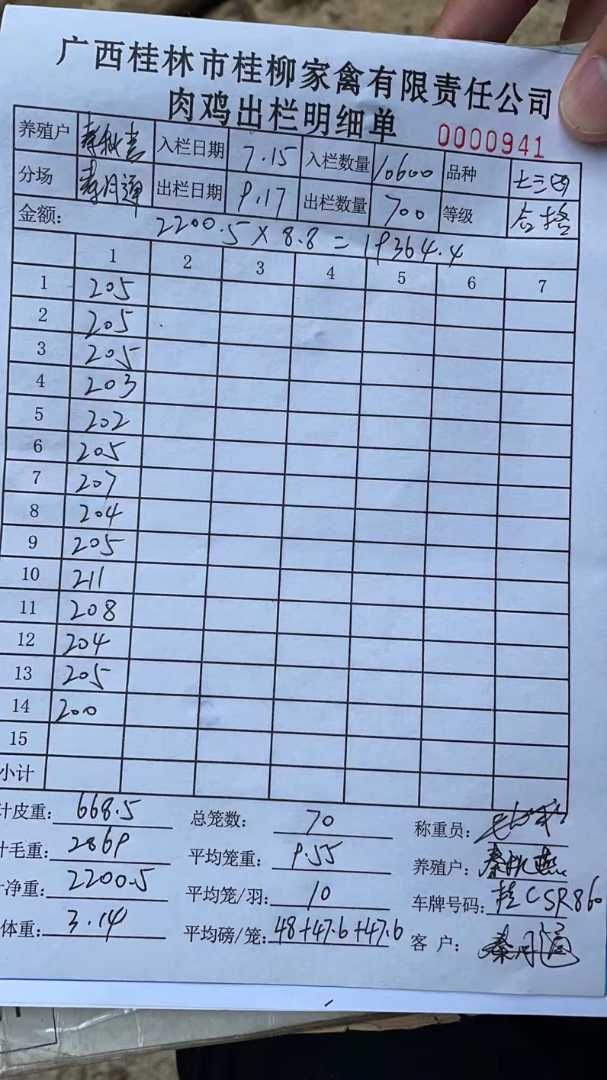 广西桂林市桂柳家禽有限责任公司
肉鸡出栏明细单 0000941
养殖户 入栏日期 7.15 入栏数量 10600 品种
分场 秦月通 出栏日期 9.17 出栏数量 700 等级 合格
金额: 2200.5×8.8=19364.4
1 2 3 4 5 6 7
1 205
2 205
3 205
4 203
5 202
6 205
7 207
8 204
9 205
10 211
11 208
12 204
13 205
14 200
15
小计
计皮重: 668.5 总笼数: 70 称重员:
计毛重: 2869 平均笼重: 9.55 养殖户:
净重: 2200.5 平均笼/羽: 10 车牌号码: 桂CSR860
体重: 3.14 平均磅/笼: 48+47.6+47.6 客 户: 秦月通